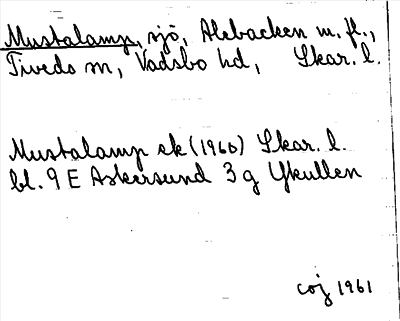 Mustalamp, sjö, Alebacken m. fl.,
Tiveds sn, Vadsbo hd, Skar. l.
Mustalamp ek (1960) Skar. l.
bl. 9 E Askersund 3 g Ykullen
coj 1961